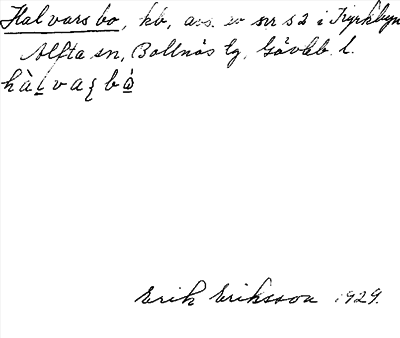 Halvars bo, kb, avs. av nr 52 i Kyrkbyn
Alfta sn, Bollnäs tg, Gävleb. l.
Erik Eriksson 1929.